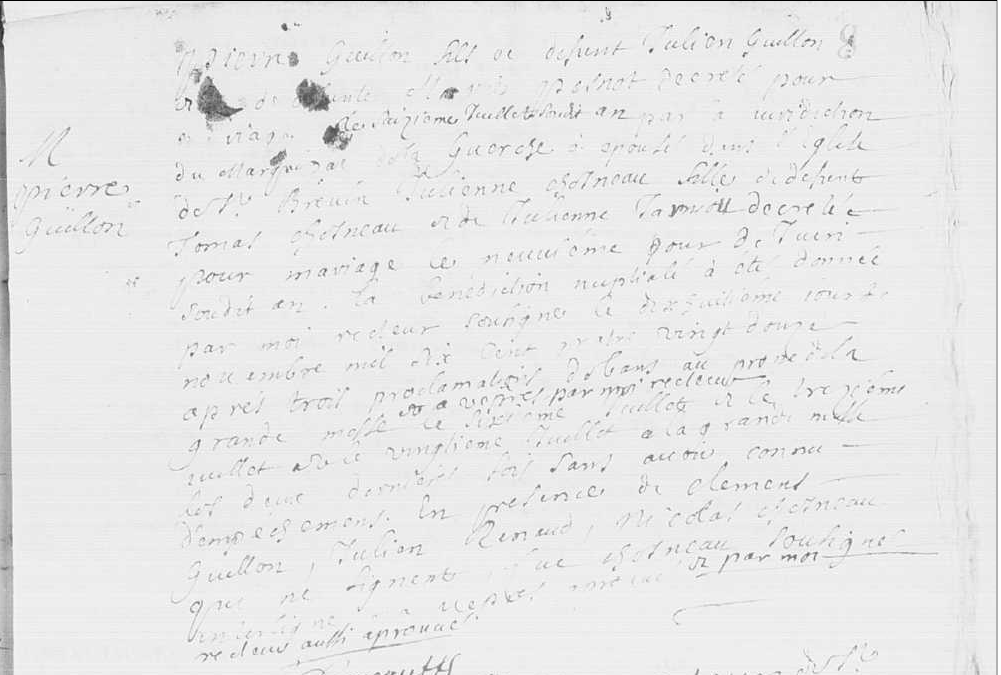 M
pierre
Guillon
pierre Guillon fils de defunt Julien Guillon
et de defunte Marie pesnot decreté pour
mariage le saizieme Juillet soudit an par la iuridiction
du Marquizat de la Guerche a epousé dans l'Eglise
de St Brevin Julienne chosneau fille de defunt
Tomas chosneau et de Julienne decretée
pour mariage le neuuieme jour de Juin
soudit an. la benediction nuptialle à été donnée
par moi recteur sousigné le dixhuitieme iour de
nouembre mil six cent quatre vingt douze
aprés trois proclamations de bans au prone de la
grande messe le sixieme Juillet et le trezieme
par moi recteur
iuillet et le vingtieme Juillet a la grande messe
les deux dernieres fois sans auoir connu
d'empechemens. En presence de clemens
Guillon, Julien Renaud, Nicolas chosneau
que ne signent, chosneau sousignes
interligne et par moi
recteur aussi aprouué